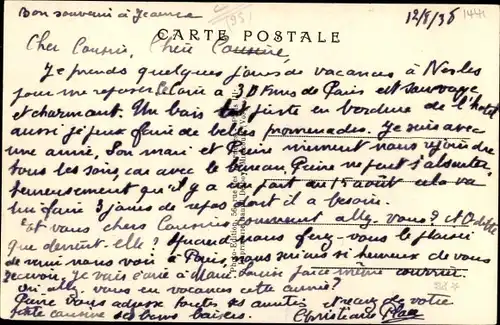 Bon souvenir à Jeanne
12/8/38
CARTE POSTALE
Cher Cousin, Chère Cousine,
Je prends quelques jours de vacances à Nesles
pour me reposer à 30 Kms de Paris est sauvage
et charmant. Un bois juste en bordure de l'hôtel
aussi je peux faire de belles promenades. Je suis avec
une amie. Son mari et Pierre viennent nous rejoindre
tous les soirs, car avec le bureau Pierre ne peut s'absenter,
heureusement qu'il y a un pont du 15 août cela va
lui faire 3 jours de repos dont il a besoin.
Et vous chers Cousins comment allez-vous? et Odette
que devient-elle? Quand nous ferez-vous le plaisir
de venir nous voir à Paris, nous serions si heureux de vous
recevoir. Je vais écrire à Marie Louise
Où allez-vous en vacances cette année?
Pierre vous adresse toutes ses amitiés et recevez de votre
petite cousine ses bons baisers.
Christiane